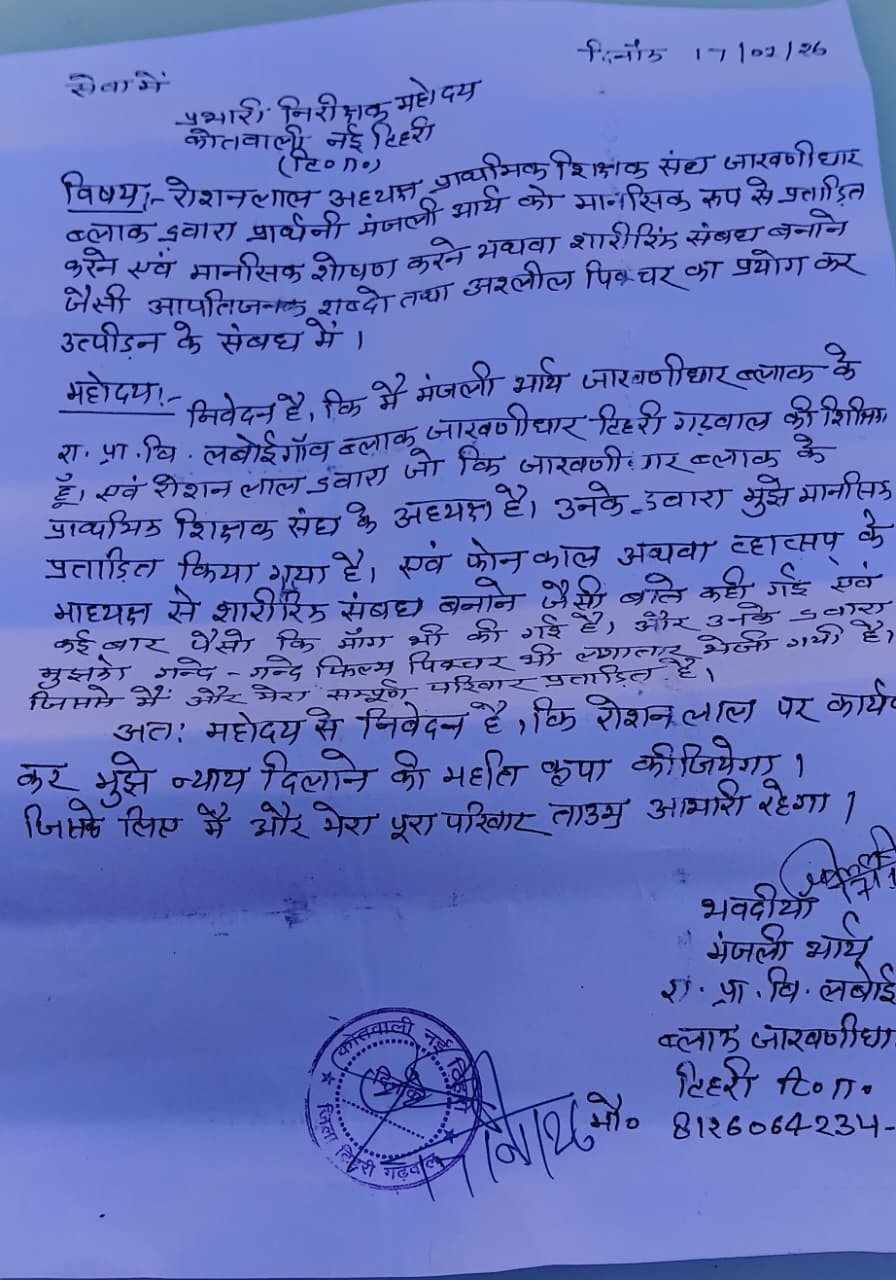 दिनाँक 17/02/26
सेवा में
प्रभारी निरीक्षक महोदय
कोतवाली नई टिहरी
(टि०ग०)
विषय:- रोशन लाल अध्यक्ष प्राथमिक शिक्षक संघ जाखणीधार
ब्लाक द्वारा प्रार्थनी मंजली आर्य को मानसिक रूप से प्रताड़ित
करने एवं मानसिक शोषण करने अथवा शारीरिक संबध बनाने
जैसी आपतिजनक शब्दो तथा अश्लील पिक्चर का प्रयोग कर
उत्पीड़न के संबध में।
महोदय:-
निवेदन है, कि मै मंजली आर्य जाखणीधार ब्लाक के
रा. प्रा. वि. लबोईगाँव ब्लाक जाखणीधार टिहरी गढ़वाल की शिक्षिका
हूँ, एवं रोशन लाल द्वारा जो कि जाखणीधार ब्लाक के
प्राथमिक शिक्षक संघ के अध्यक्ष है। उनके द्वारा मुझे मानसिक
प्रताड़ित किया गया है। एवं फोन काल अथवा व्हाटसप् के
माध्यम से शारीरिक संबध बनाने जैसी बाते कही गई एवं
कई बार पैसो कि माँग भी की गई है, और उनके द्वारा
मुझको गन्दे-गन्दे फिल्म पिक्चर भी लगातार भेजी गयी है,
जिससे मैं और मेरा सम्पूर्ण परिवार प्रताड़ित है।
अत: महोदय से निवेदन है, कि रोशन लाल पर कार्यव
कर मुझे न्याय दिलाने की महति कृपा कीजियेगा।
जिसके लिए मै और मेरा पूरा परिवार ताउम्र आभारी रहेगा।
भवदीया
मंजली आर्य
रा. प्रा. वि. लबोई
ब्लाक जाखणीधा
टिहरी टि०ग०
मो० 8126064234-
कोतवाली नई टिहरी
जिला टिहरी गढ़वाल